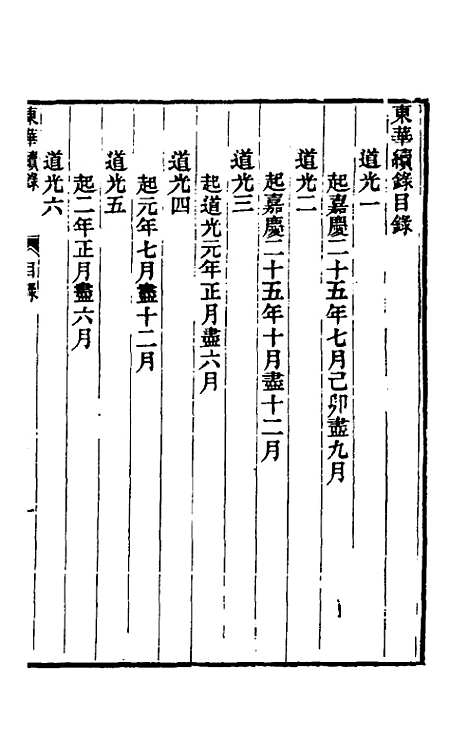 東華續錄目錄
道光一
起嘉慶二十五年七月己卯盡九月
道光二
起嘉慶二十五年十月盡十二月
道光三
起道光元年正月盡六月
道光四
起元年七月盡十二月
道光五
起二年正月盡六月
道光六
東華續錄
目錄
一